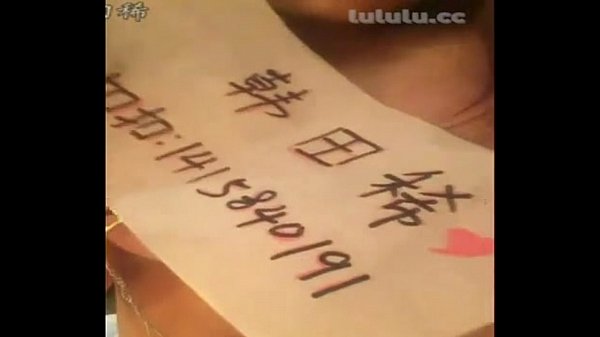 lululu.cc
田稀
韩田稀
扣扣:1415840191